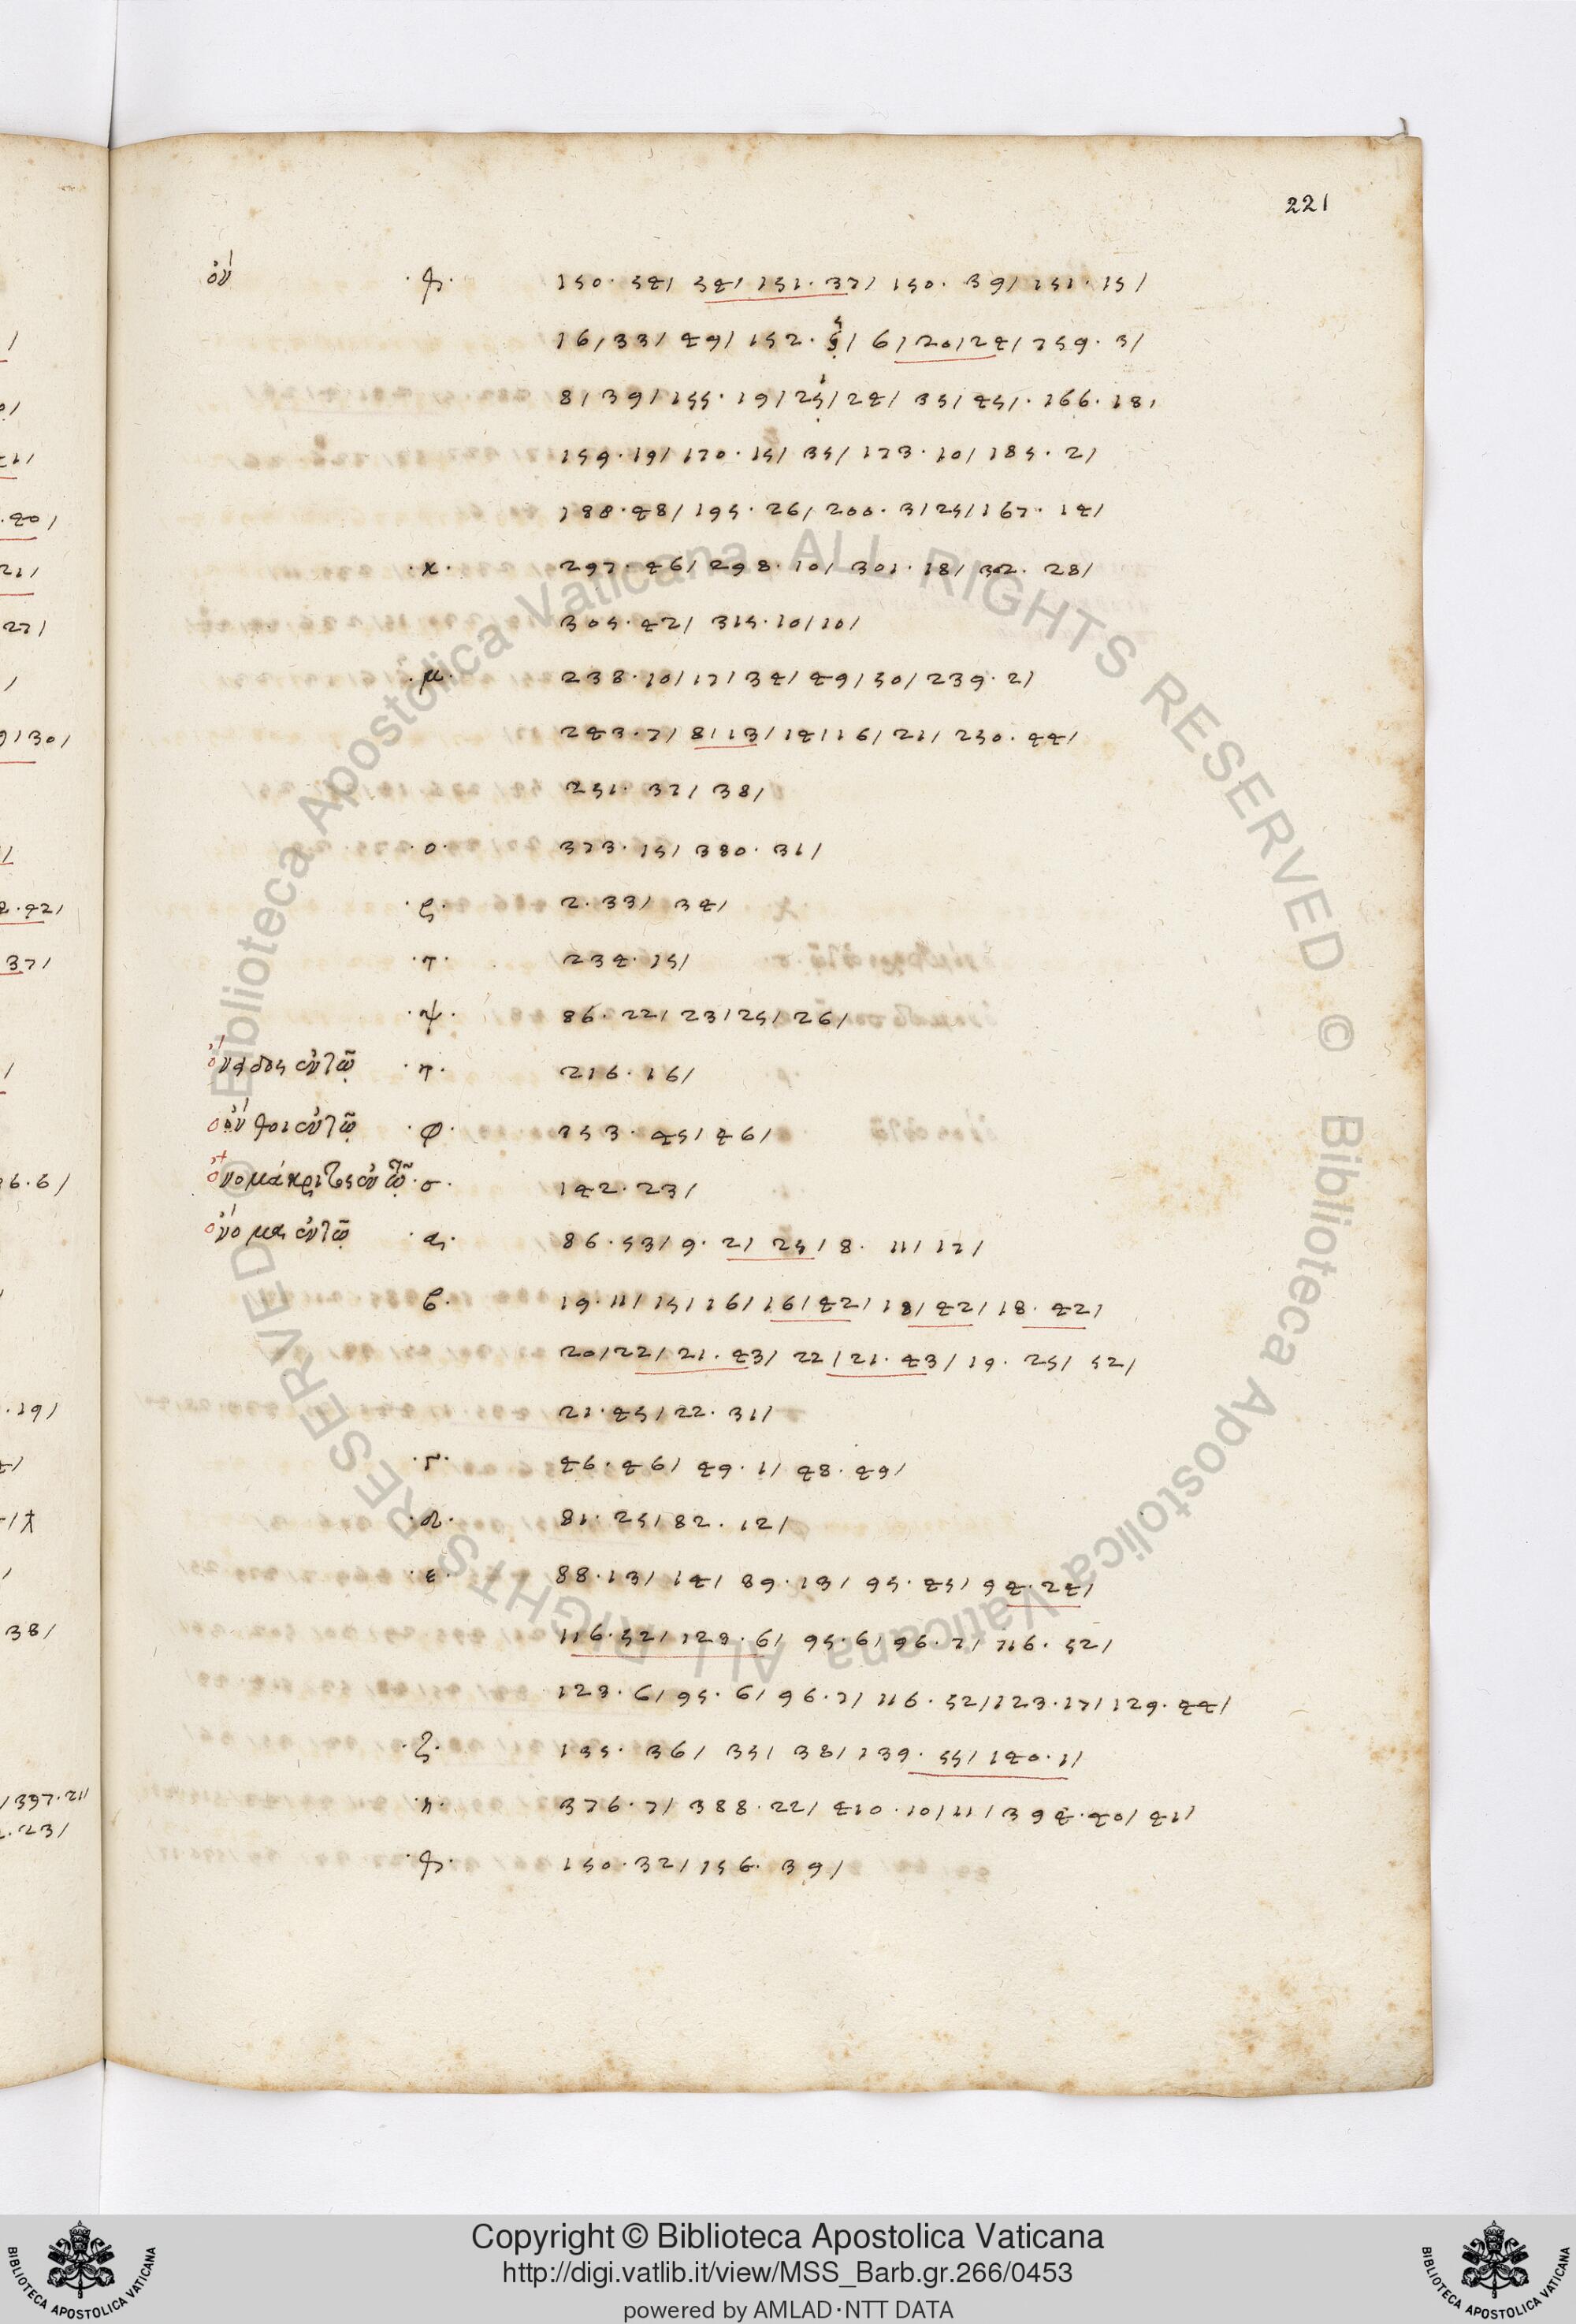 221
ὀν ·θ· 150·54/ 54/ 151·37/ 150·39/ 151·15/
16/33/ 49/ 152· 5/ 6/20/24/ 159·3/
8/39/155·19/25/24/ 35/45/·166·18/
159·19/170·15/ 35/ 173·10/185·2/
188·48/195·26/200·3/25/167·14/
·κ· 297·46/298·10/ 301·18/ 302·28/
305·42/ 315·10/10/
·μ· 238·10/17/34/49/50/239·2/
243·7/ 8/13/14/16/21/250·44/
251·37/ 38/
·ο· 373·15/380·31/
·ξ· 2·33/ 34/
·τ· 234·15/
·ψ· 86·22/23/25/26/
·π· 216·16/
·φ· 353·45/46/
·σ· 142·23/
·α· 86·53/9·2/ 25/8· 11/17/
·β· 19·11/15/16/16/42/18/42/18·42/
20/22/21·43/ 22/21·43/19·25/ 52/
21·45/22·31/
·γ· 46·46/ 49·1/ 48·49/
·δ· 81·25/82·12/
·ε· 88·13/14/ 89·13/ 95·45/94·24/
116·52/128·6/ 95·6/96·7/116·52/
128·6/95·6/96·7/116·52/123·17/129·44/
·ζ· 135·36/ 35/ 38/139·55/140·1/
·η· 376·7/388·22/410·10/11/394·40/41/
·θ· 150·32/156·39/
9/30/
.40/
21/
27/
37/
6.6/
.19/
38/
/397·21/
.23/
© Biblioteca Apostolica Vaticana ALL RIGHTS RESERVED © Biblioteca Apostolica Vaticana ALL RIGHTS RESERVED
Copyright © Biblioteca Apostolica Vaticana
http://digi.vatlib.it/view/MSS_Barb.gr.266/0453
powered by AMLAD·NTT DATA
BIBLIOTECA APOSTOLICA VATICANA
BIBLIOTECA APOSTOLICA VATICANA